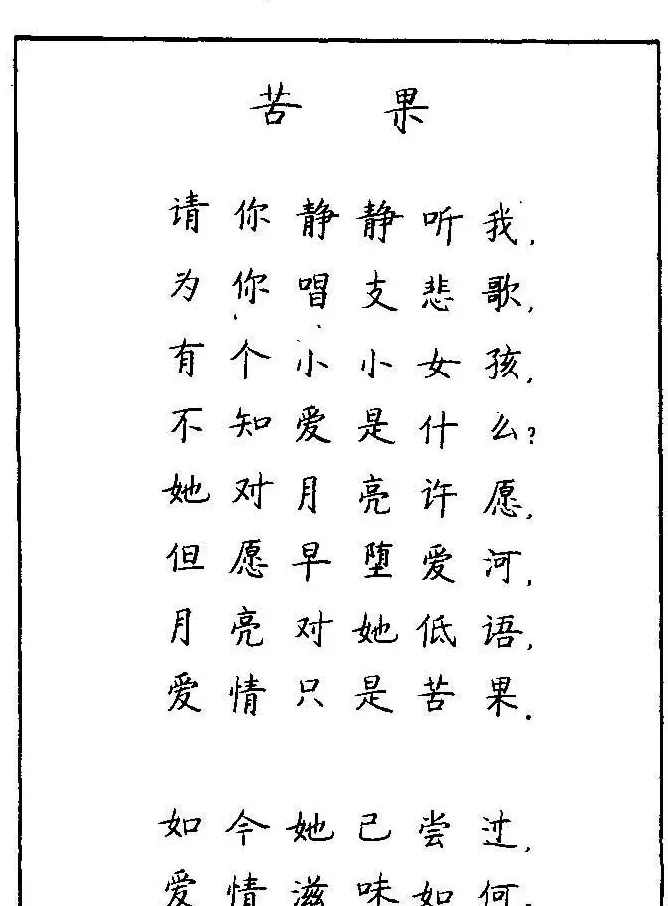 苦 果
请你静静听我,
为你唱支悲歌,
有个小小女孩,
不知爱是什么?
她对月亮许愿,
但愿早堕爱河,
月亮对她低语,
爱情只是苦果.
如今她已尝过,
爱情滋味如何,